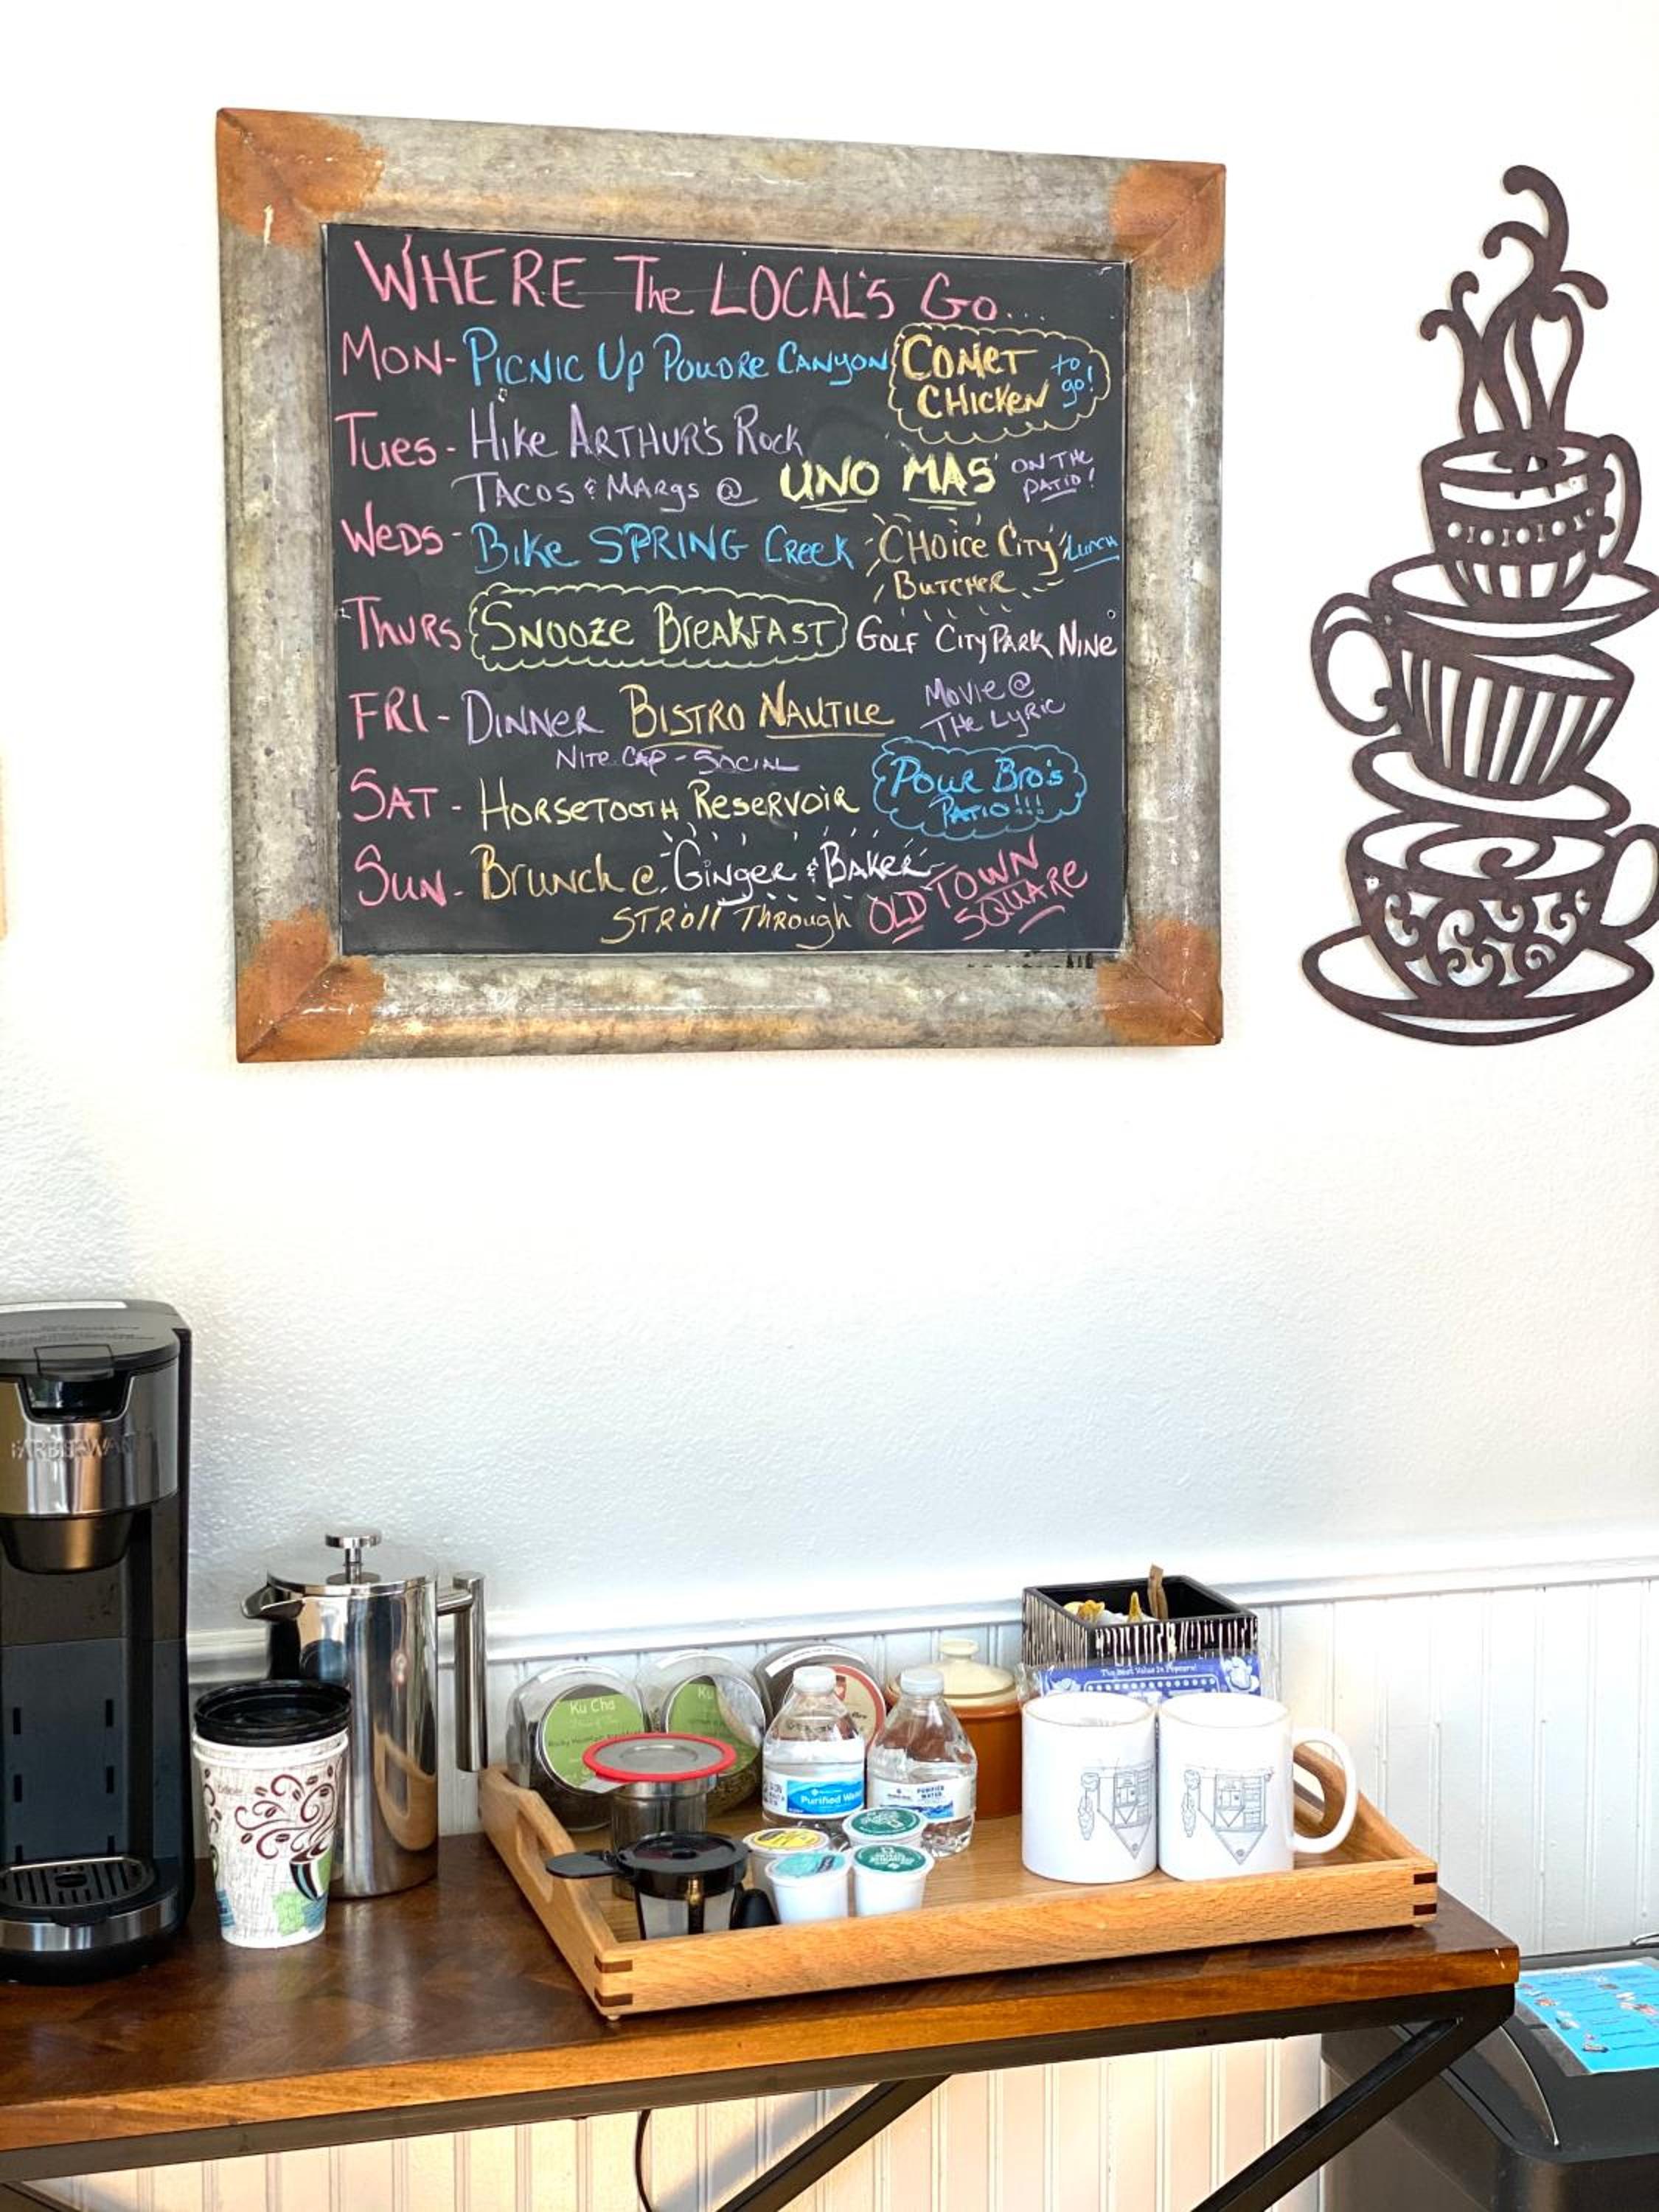 WHERE The LOCAL'S Go...
MON- PICNIC Up POUDRE CANYON COMET CHICKEN to go!
Tues- Hike ARTHUR'S Rock
TACOS & MARgS @ UNO MAS ON THE PATIO!
WeDS- Bike SPRING Creek CHOice City BUTCHER Lunch
THURS SNOOZE BREAKFAST GOLF CITY PARK NINE
FRI- DINNER BISTRO NAUTILE MOVIE @ THE LYRIC
NITE CAP - SOCIAL
SAT- HORSETOOTH RESERVOIR POUR BRO'S PATIO!!!
SUN- Brunch @ GINGER & BAKER
STROll Through OLD TOWN SQUARE
FARBERWARE
Ku Cha
Rocky Mountain
Ku
The Best Value In Popcorn!
Purified Water
PURIFIED WATER